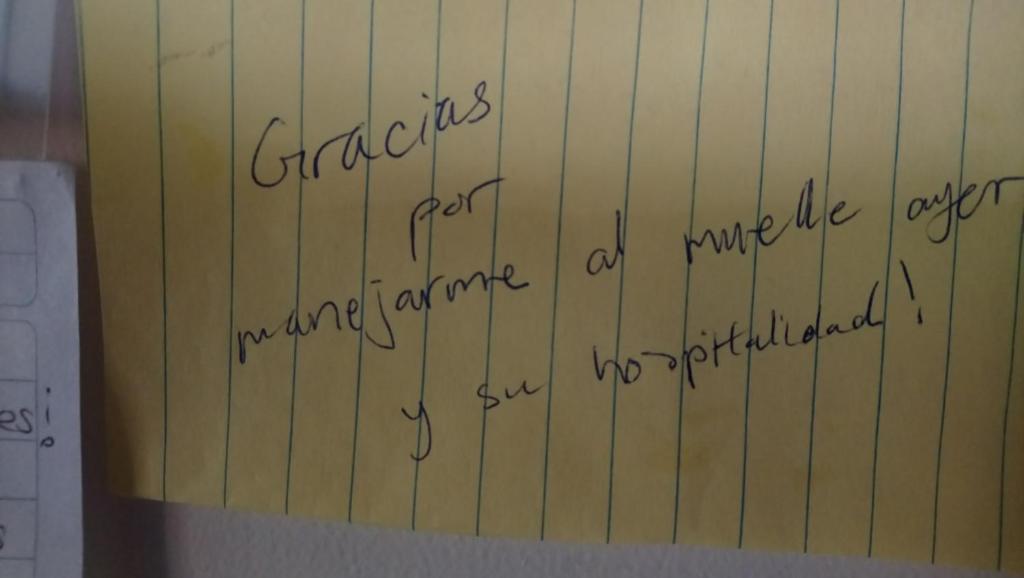 Gracias
por
manejarme al muelle ayer
y su hospitalidad!
es!
s